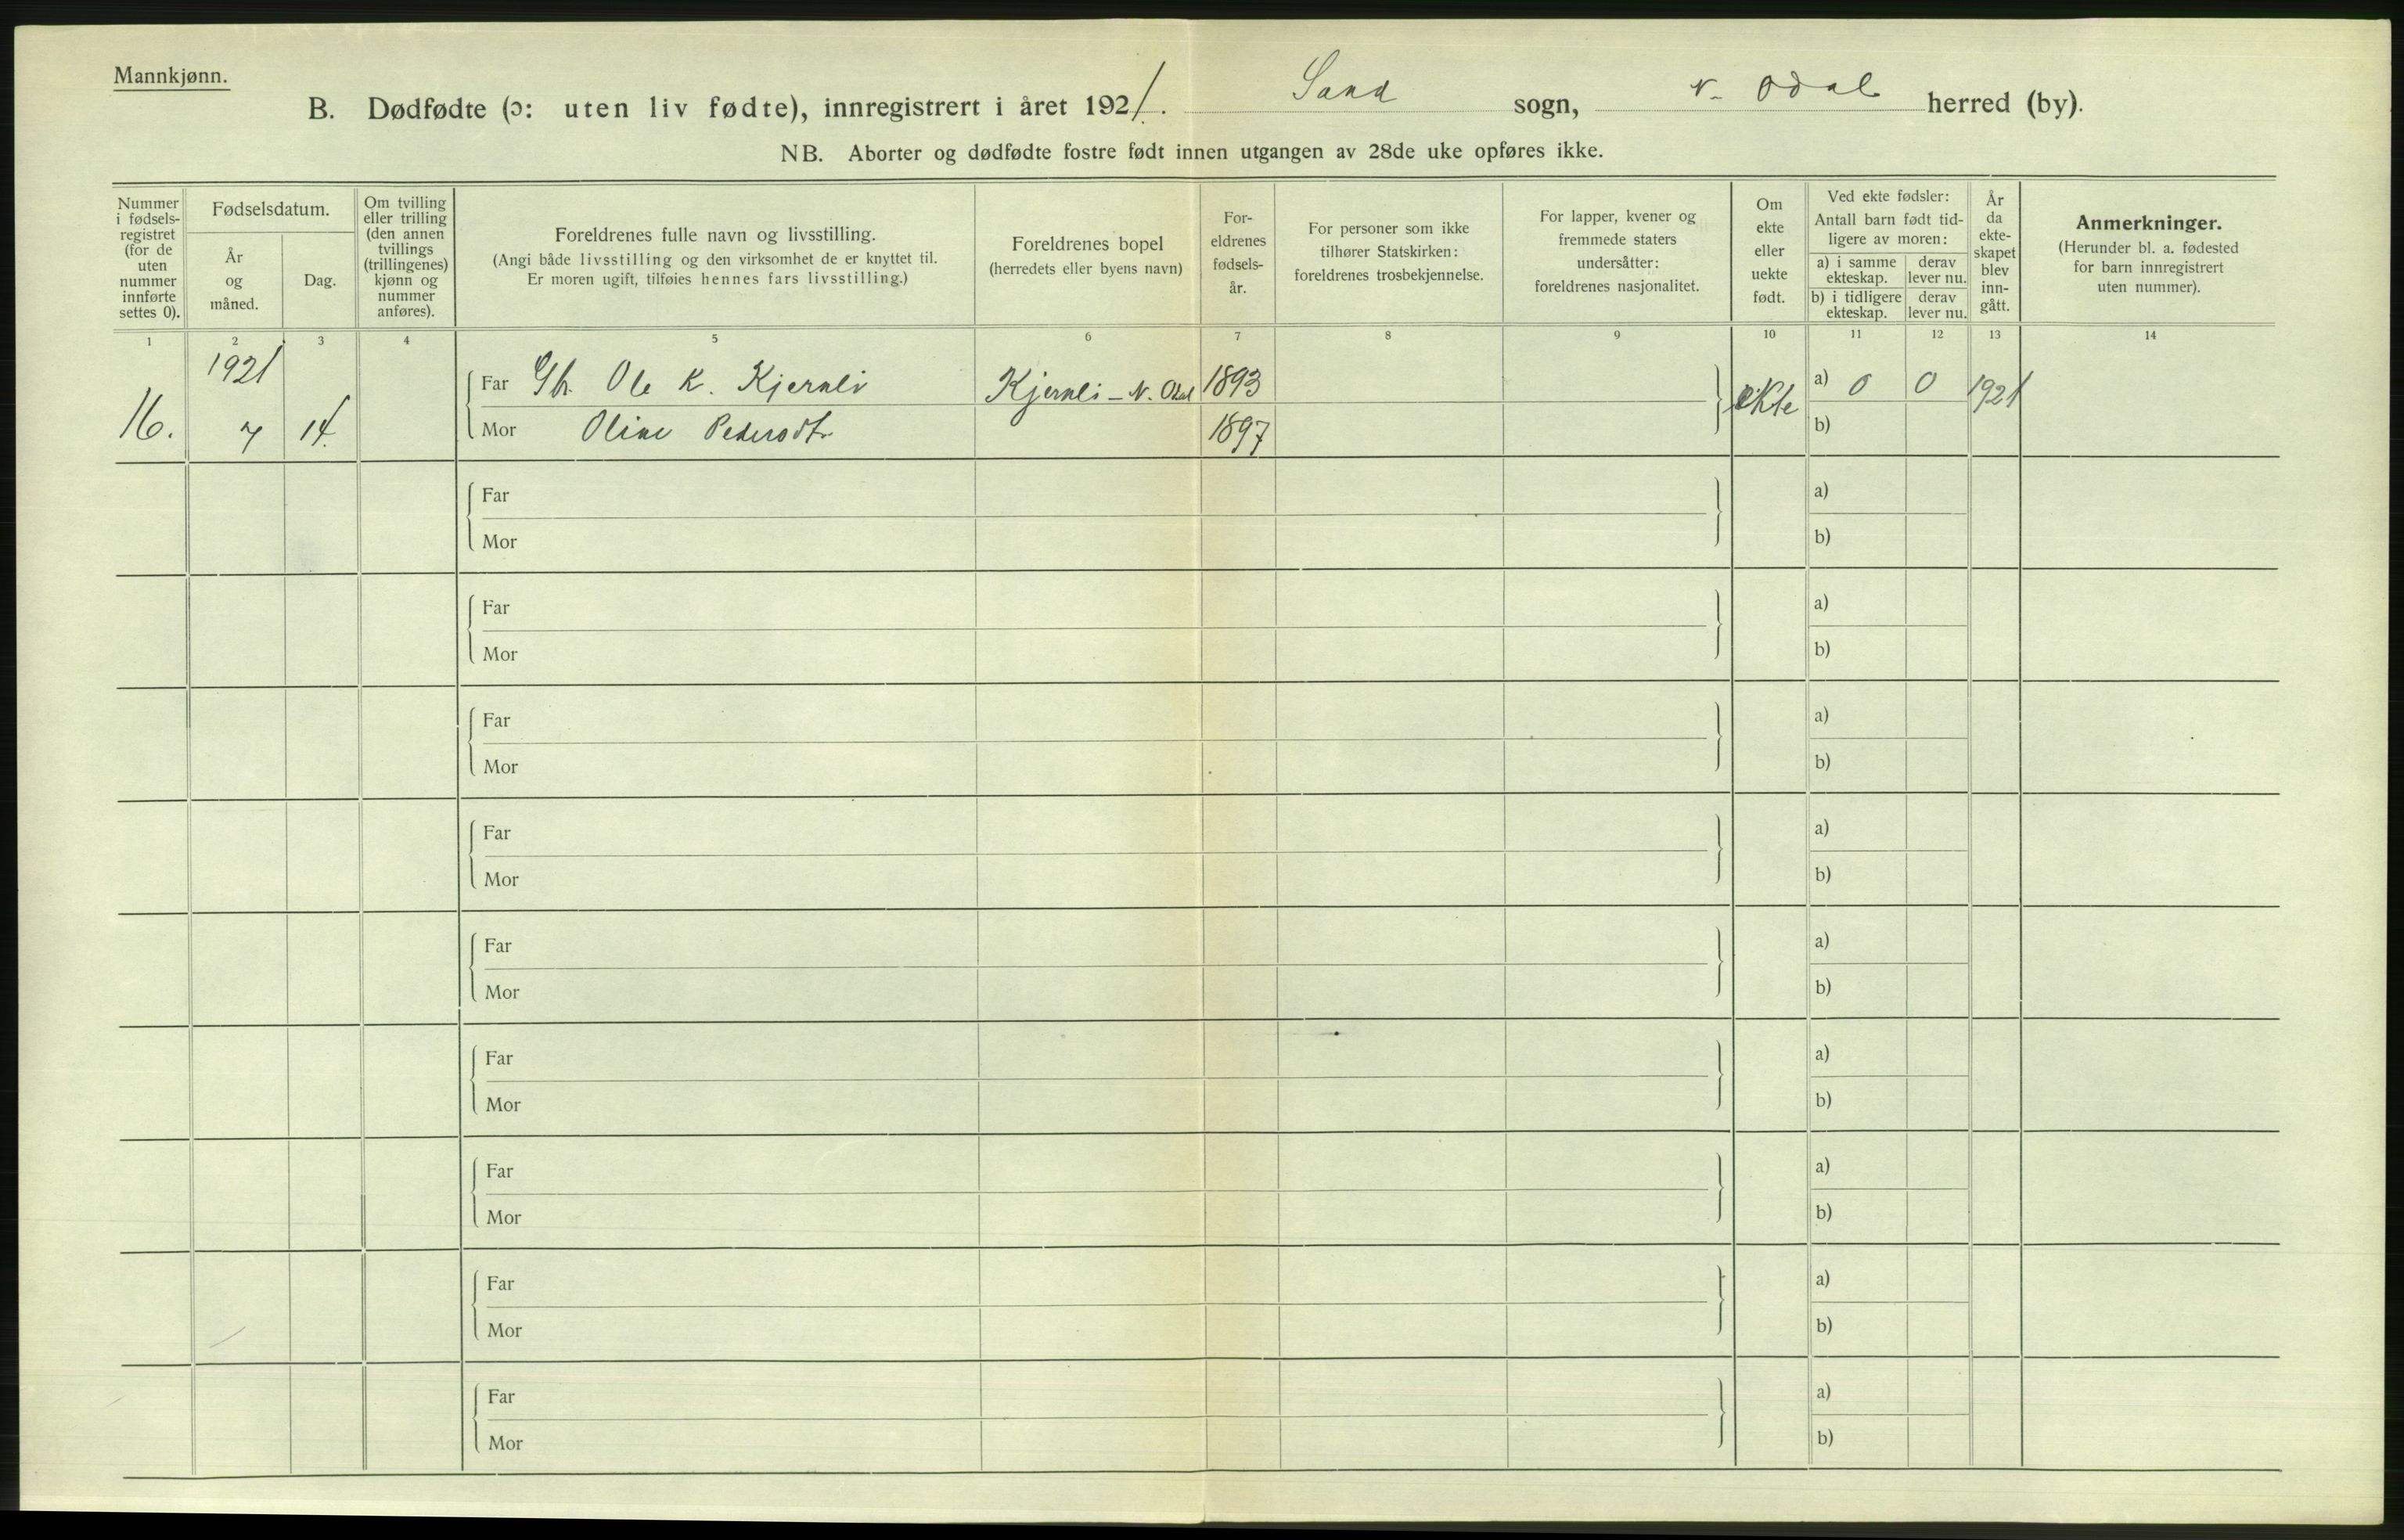 Mannkjønn.
B. Dødfødte (ɔ: uten liv fødte), innregistrert i året 1921. Sand sogn, N. Odal herred (by).
NB. Aborter og dødfødte fostre født innen utgangen av 28de uke opføres ikke.
Nummer
i fødsels-
registret
(for de
uten
nummer
innførte
settes 0).
Fødselsdatum.
År
og
måned.
Dag.
Om tvilling
eller trilling
(den annen
tvillings
(trillingenes)
kjønn og
nummer
anføres).
Foreldrenes fulle navn og livsstilling.
(Angi både livsstilling og den virksomhet de er knyttet til.
Er moren ugift, tilføies hennes fars livsstilling.)
Foreldrenes bopel
(herredets eller byens navn)
For-
eldrenes
fødsels-
år.
For personer som ikke
tilhører Statskirken:
foreldrenes trosbekjennelse.
For lapper, kvener og
fremmede staters
undersåtter:
foreldrenes nasjonalitet.
Om
ekte
eller
uekte
født.
Ved ekte fødsler:
Antall barn født tid-
ligere av moren:
a) i samme
ekteskap.
derav
lever nu.
b) i tidligere
ekteskap.
derav
lever nu.
År
da
ekte-
skapet
blev
inn-
gått.
Anmerkninger.
(Herunder bl. a. fødested
for barn innregistrert
uten nummer).
1 2 3 4 5 6 7 8 9 10 11 12 13 14
1921
Far Gbr. Ole K. Kjernli Kjernli - N. Odal 1893 a) 0 0
16. 7 14. ekte 1921
Mor Oline Pedersdtr. 1897 b)
Far a)
Mor b)
Far a)
Mor b)
Far a)
Mor b)
Far a)
Mor b)
Far a)
Mor b)
Far a)
Mor b)
Far a)
Mor b)
Far a)
Mor b)
Far a)
Mor b)